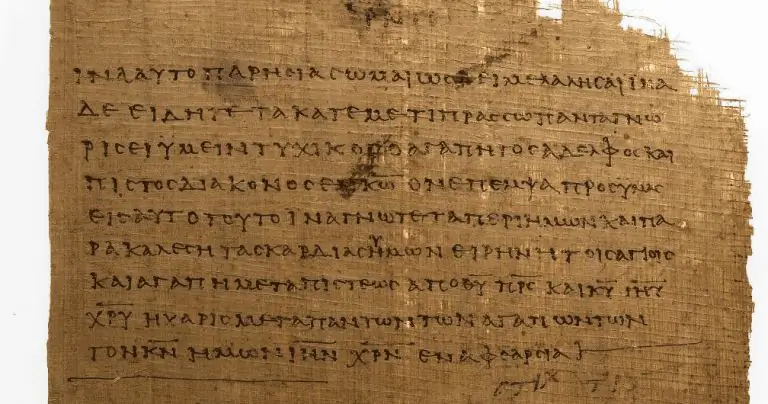 ΙΝΑΑΥΤΟΠΑΡΗϹΙΑϹΩΜΑΙΩϹΔΕΙΜΕΛΑΛΗϹΑΙΙΝΑ
ΔΕΕΙΔΗΤΕΤΑΚΑΤΕΜΕΤΙΠΡΑϹϹΩΠΑΝΤΑΓΝΩ
ΡΙϹΕΙΥΜΕΙΝΤΥΧΙΚΟϹΟΑΓΑΠΗΤΟϹΑΔΕΛΦΟϹΚΑΙ
ΠΙϹΤΟϹΔΙΑΚΟΝΟϹΕΝΚ̅Ω̅ΟΝΕΠΕΜΨΑΠΡΟϹΥΜΑϹ
ΕΙϹΑΥΤΟΤΟΥΤΟΙΝΑΓΝΩΤΕΤΑΠΕΡΙΗΜΩΝΚΑΙΠΑ
ΡΑΚΑΛΕϹΗΤΑϹΚΑΡΔΙΑϹΗΜΩΝΕΙΡΗΝΗΤΟΙϹΑΓΙΟΙϹ
ΚΑΙΑΓΑΠΗΜΕΤΑΠΙϹΤΕΩϹΑΠΟΘ̅Υ̅Π̅Ρ̅Ϲ̅ΚΑΙΚ̅Υ̅Ι̅Η̅Υ̅
Χ̅Ρ̅Υ̅ΗΧΑΡΙϹΜΕΤΑΠΑΝΤΩΝΤΩΝΑΓΑΠΩΝΤΩΝ
ΤΟΝΚ̅Ν̅ΗΜΩΝΙ̅Η̅Ν̅Χ̅Ρ̅Ν̅ΕΝΑΦΘΑΡϹΙΑ
ϹΤΙΧ